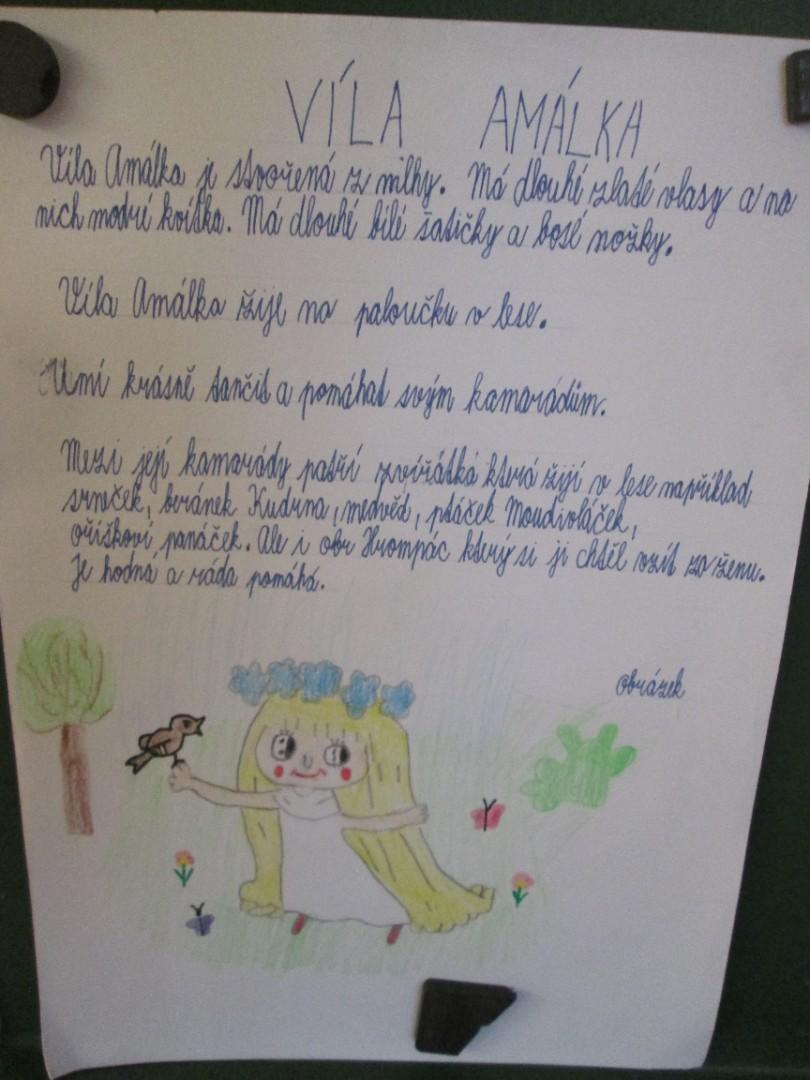 VÍLA AMÁLKA
Víla Amálka je stvořená z mlhy. Má dlouhé zlaté vlasy a na
nich modré kvítka. Má dlouhé bílé šatičky a bosé nožky.
Víla Amálka žije na paloučku v lese.
Umí krásně tančit a pomáhat svým kamarádům.
Mezi její kamarády patří zvířátká která žijí v lese například
srneček, beránek Kudrna, medvěd, ptáček Moudivláček,
oříškoví panáček. Ale i obr Hrompác který si ji chtěl vzít za ženu.
Je hodna a ráda pomáhá.
obrázek